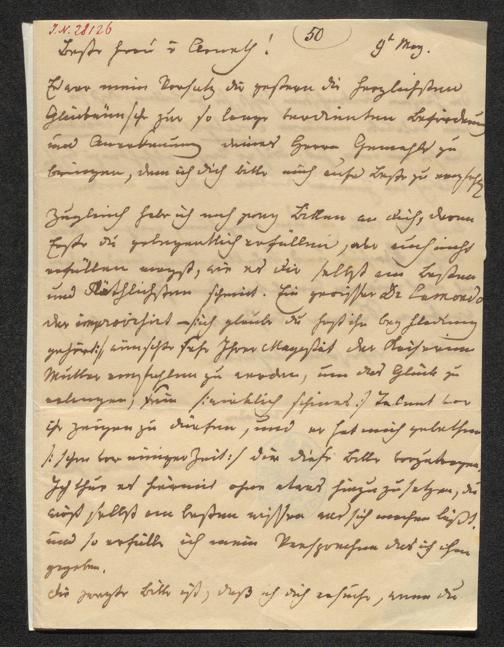 I.N. 28126
50
Beste Frau v Arneth! 9t May.
Es war mein Vorsatz dir gestern die herzlichsten
Glückwünsche zur so lange verdienten Beförderung
und Anerkennung deines Herrn Gemahls zu
bringen, dem ich dich bitte mich aufs Beste zu empfehlen
Zugleich habe ich noch zwey Bitten an dich, deren
Erste du gelegentlich erfüllen, oder auch nicht
erfüllen magst, wie es dir selbst am Besten
und Räthlichsten scheint. Ein gewisser Dr
der improvisirt – ich glaube du hast ihn bey
gehört, wünschte sehr Ihrer Magestät der Kaiserin
Mutter empfohlen zu werden, um das Glück zu
erlangen, sein /:wirklich schönes:/ Talent vor
ihr zeigen zu dürfen, und er hat mich gebethen
/:schon vor einiger Zeit:/ dir diese Bitte vorzutragen.
Ich thue es hiermit ohne etwas hinzuzusetzen, du
wirst selbst am besten wissen was sich machen läßt.
und so erfülle ich mein Versprechen das ich ihm
gegeben.
Die zweyte Bitte ist, daß ich dich ersuche, wenn du